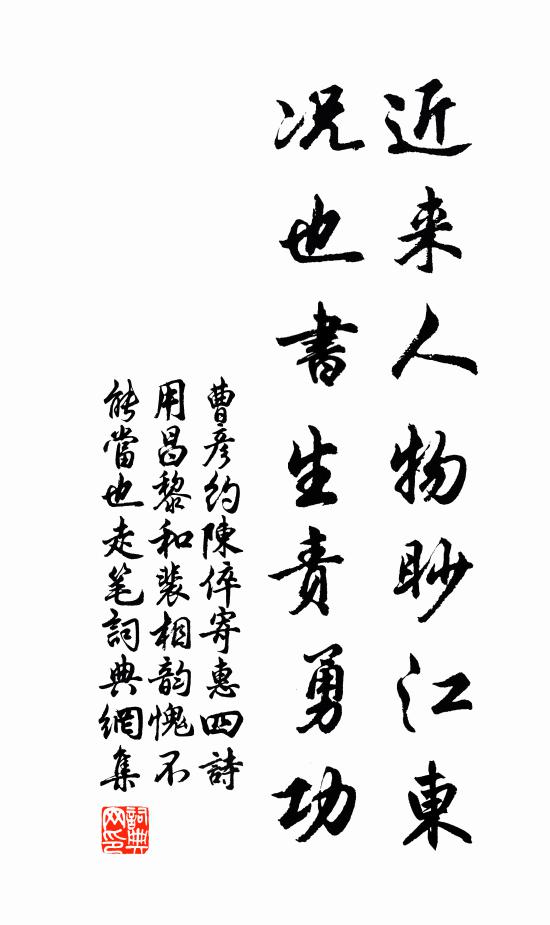 近来人物眇江東
况也書生責勇功
曹彦約陳倅寄惠四詩
用昌黎和裴相韵愧不
能當也走笔詞典網集
詞典网印